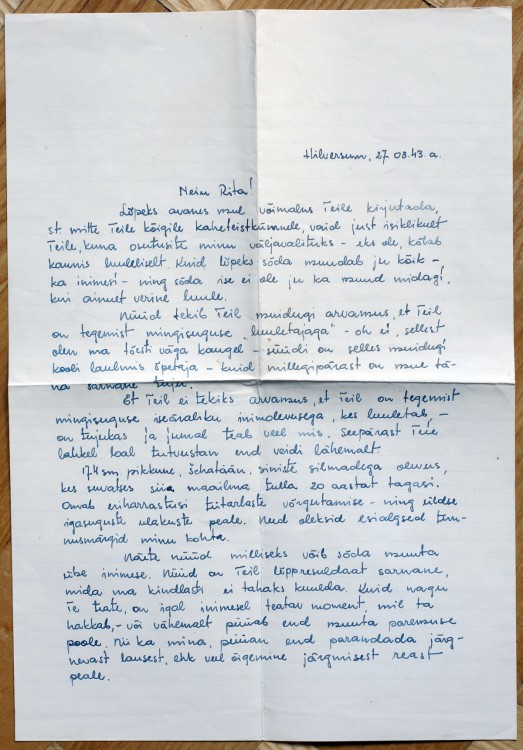 Hilversum, 27 03.43.a.
Neiu Rita!
Lõpeks avanes mul võimalus Teile kirjutada,
st. mitte Teile kõigile kaheteistkümnele, vaid just isiklikult
Teile, kuna osutusite minu väljavalituiks - eks ole, kõlab
kaunis luuleliselt. Kuid lõpeks sõda muundab ju kõik -
ka inimesi - ning sõda ise ei ole ju ka muud midagi,
kui ainult verine luule.
Nüüd tekib Teil muidugi arvamus, et Teil
on tegemist mingisuguse "luuletajaga" - oh ei, sellest
olen ma tõesti väga kaugel - süüdi on selles muidugi
kooli laulmis õpetaja - kuid millegipärast on mul tä-
na sarnane tuju.
Et Teil ei tekiks arvamus, et Teil on tegemist
mingisuguse iseäraliku inimolevusega, kes luuletab, -
on tujukas ja jumal teab veel mis. Seepärast Teie
lahkel loal tutvustan end veidi lähemalt.
174 sm. pikkune, šhatään, siniste silmadega olevus,
kes suvatses siia maailma tulla 20 aastat tagasi.
Omab eriharrastusi tütarlaste võrgutamise - ning üldse
igasuguste ulakuste peale. Need oleksid esialgsed tun-
nusmärgid minu kohta.
Näete nüüd milliseks võib sõda muuta
ühe inimese. Nüüd on Teil lõppresuldaat sarnane,
mida ma kindlasti ei tahaks kuulda. Kuid nagu
Te teate, on igal inimesel teatav moment, mil ta
hakkab, - või vähemalt püüab end muuta paremuse
poole. Nii ka mina, püüan end parandada järg-
nevast lausest, ehk veel õigemine järgmisest reast
peale.